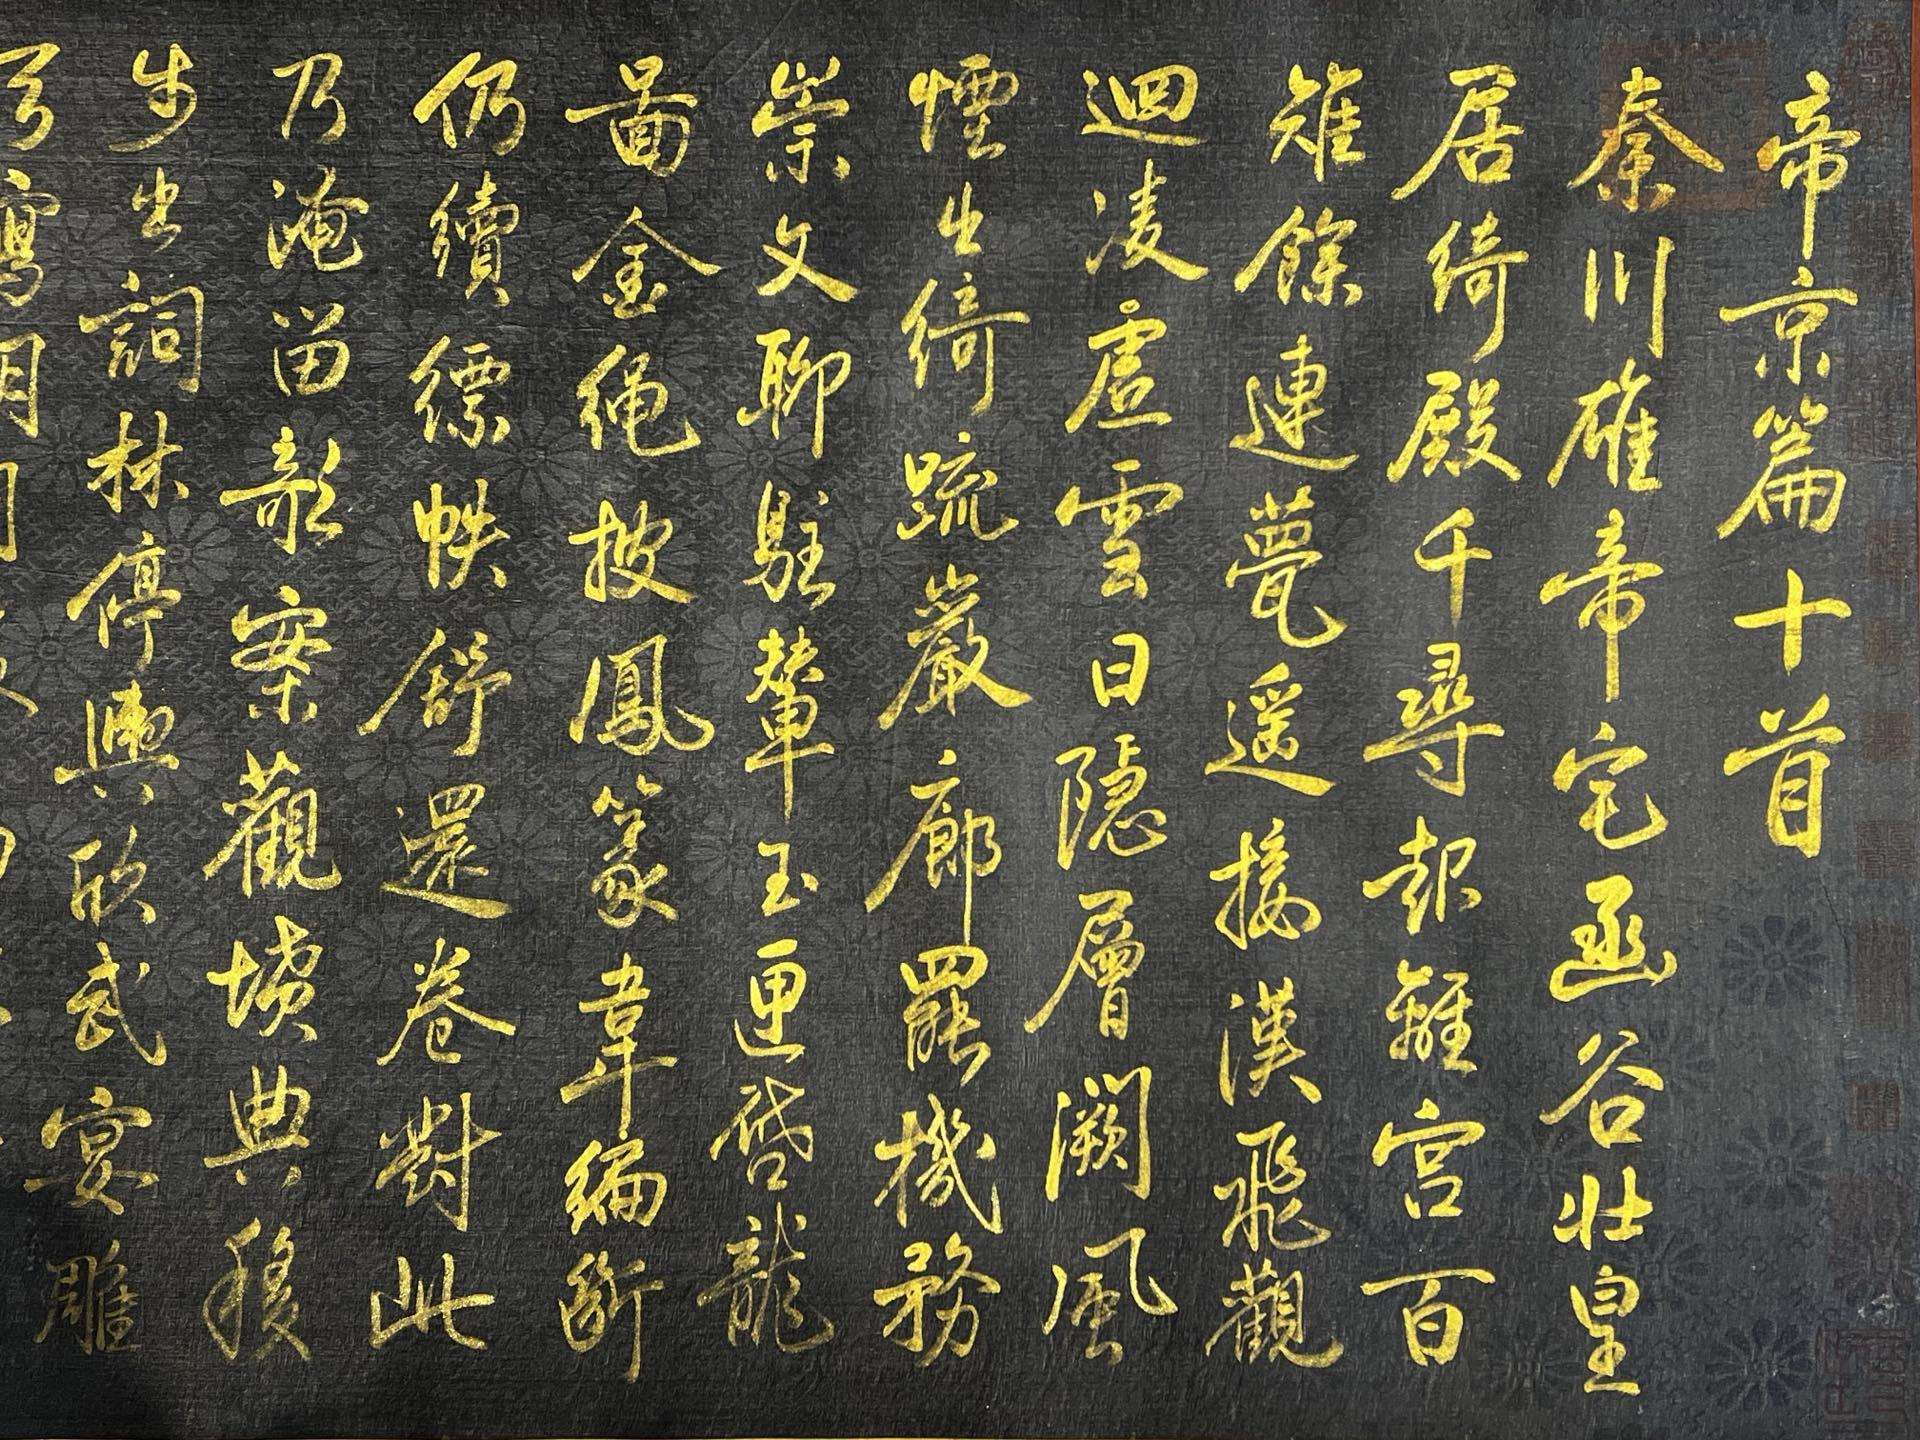 帝京篇十首
秦川雄帝宅函谷壮皇
居綺殿千尋起離宮百
雉餘連甍遥接漢飛觀
迴凌虛雲日隱層闕風
煙出綺疏巖廊罷機務
崇文聊駐輦玉匣啓龍
圖金繩披鳳篆韋編斷
仍續縹帙舒還卷對此
乃淹留欹案觀墳典移
步出詞林停輿欣武宴雕
弓寫明月